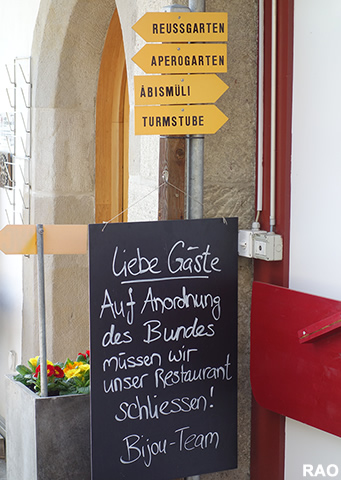 REUSSGARTEN
APEROGARTEN
ÄBISMÜLI
TURMSTUBE
Liebe Gäste
Auf Anordnung
des Bundes
müssen wir
unser Restaurant
schliessen!
Bijou-Team
RAO